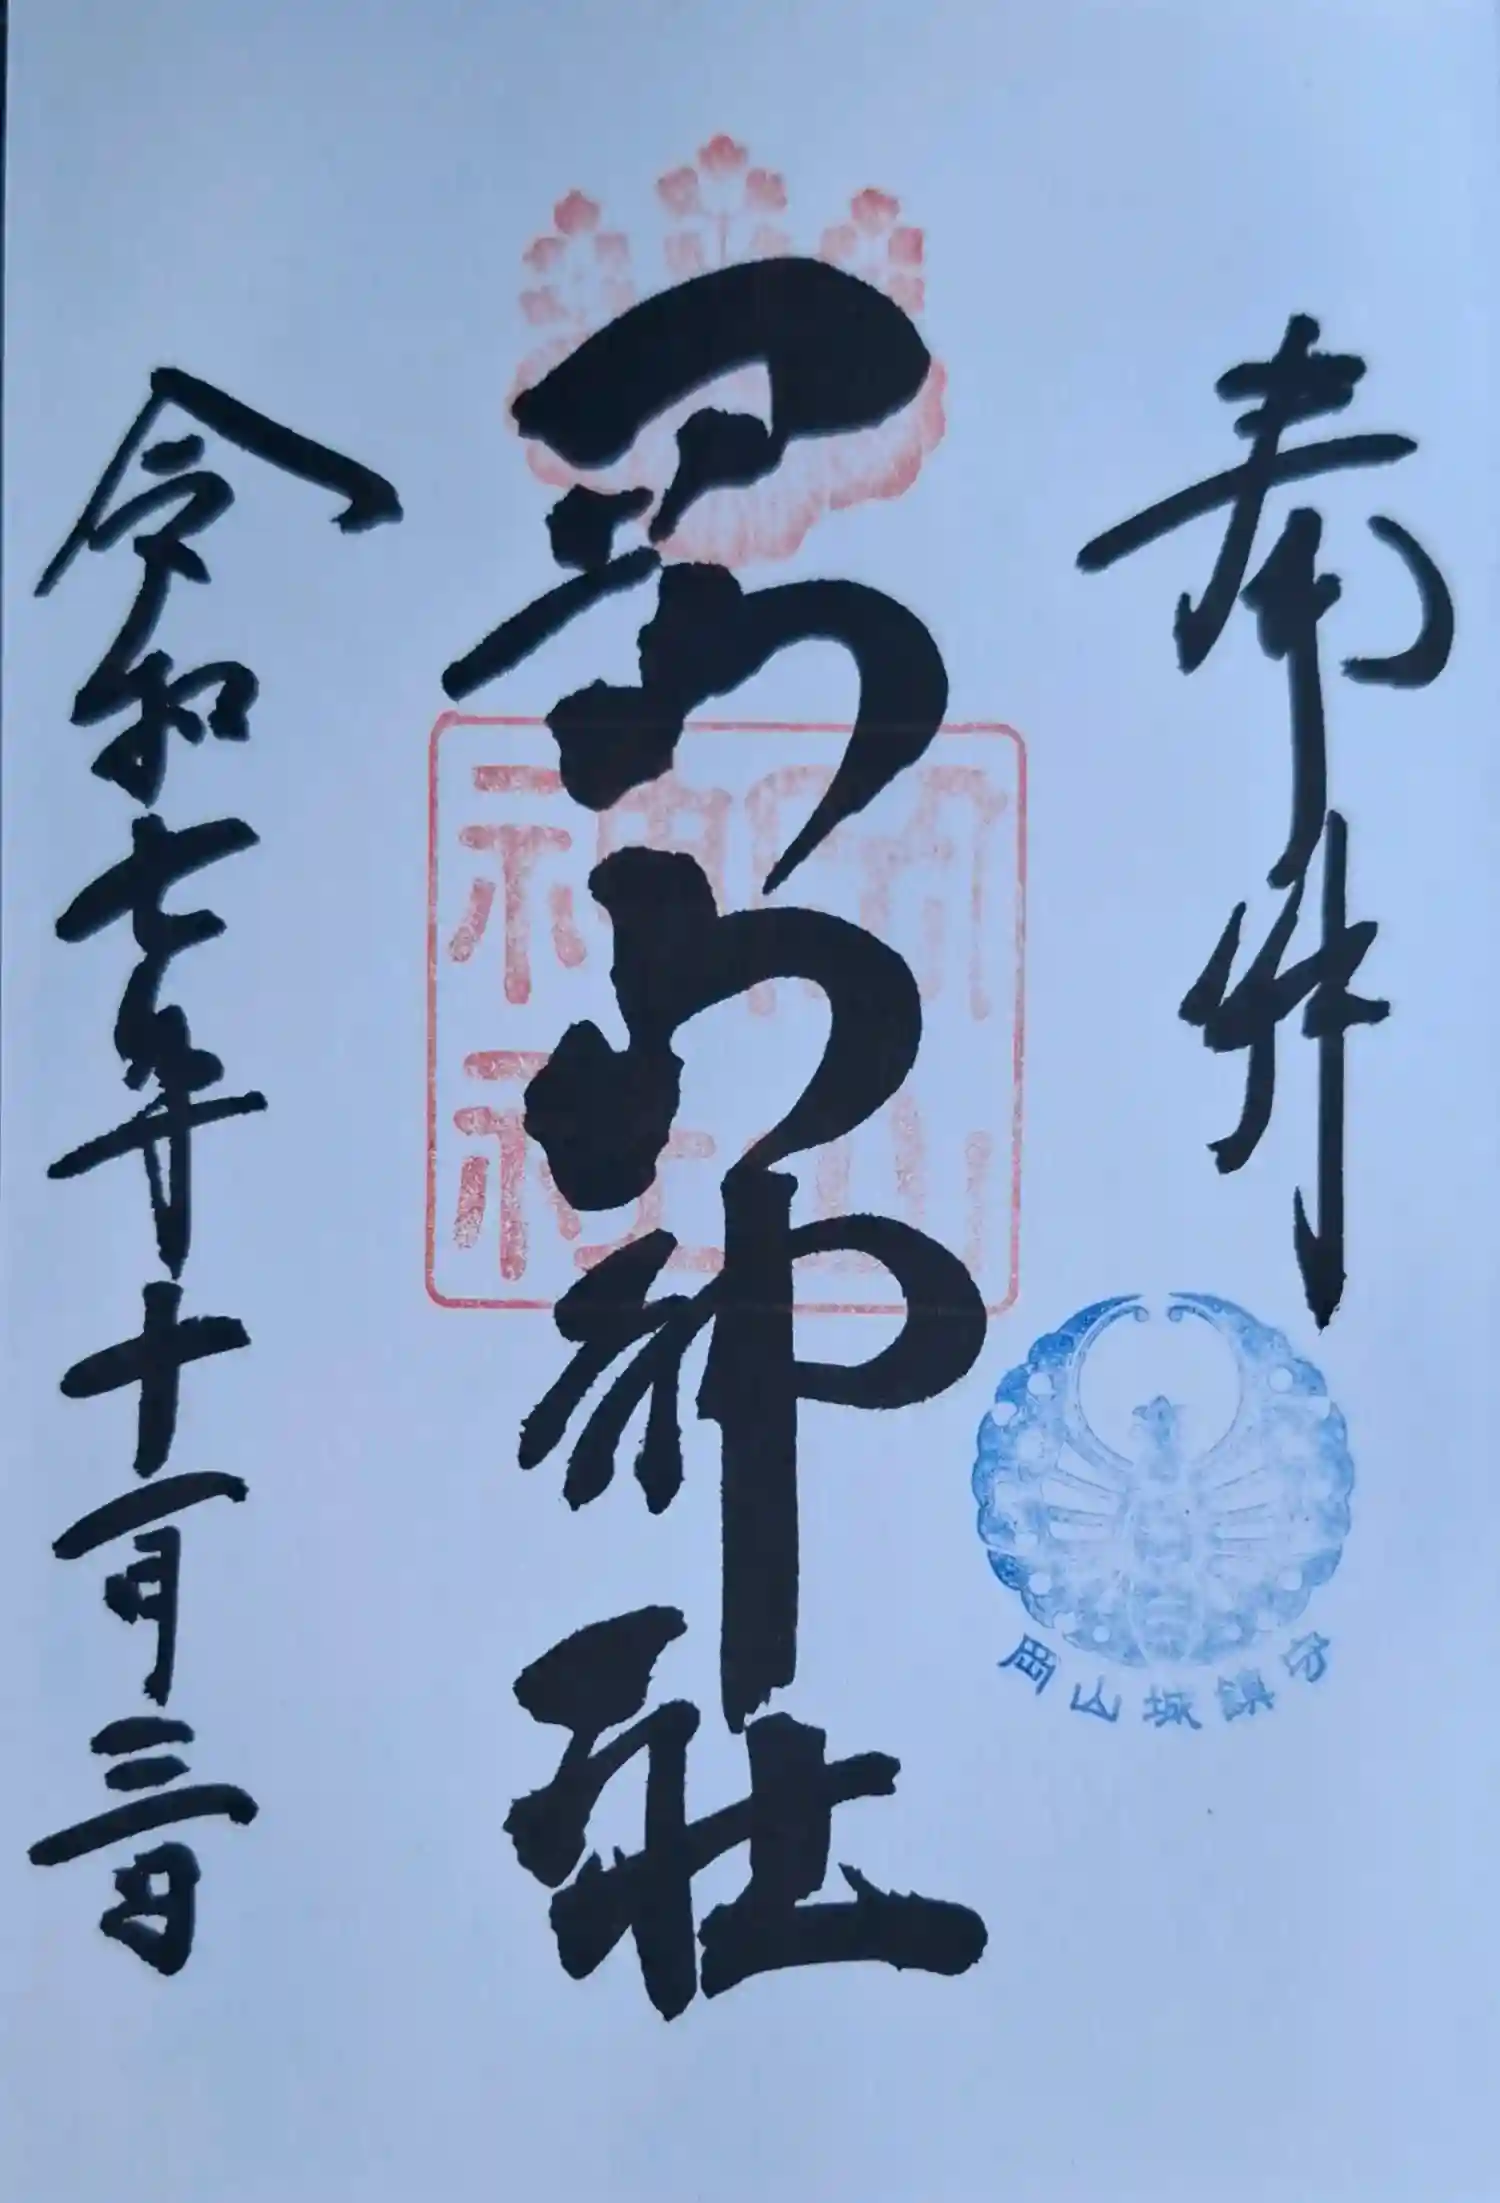 奉拝
岡山神社
岡山
神社
岡山城鎮守
令和七年十一月三日